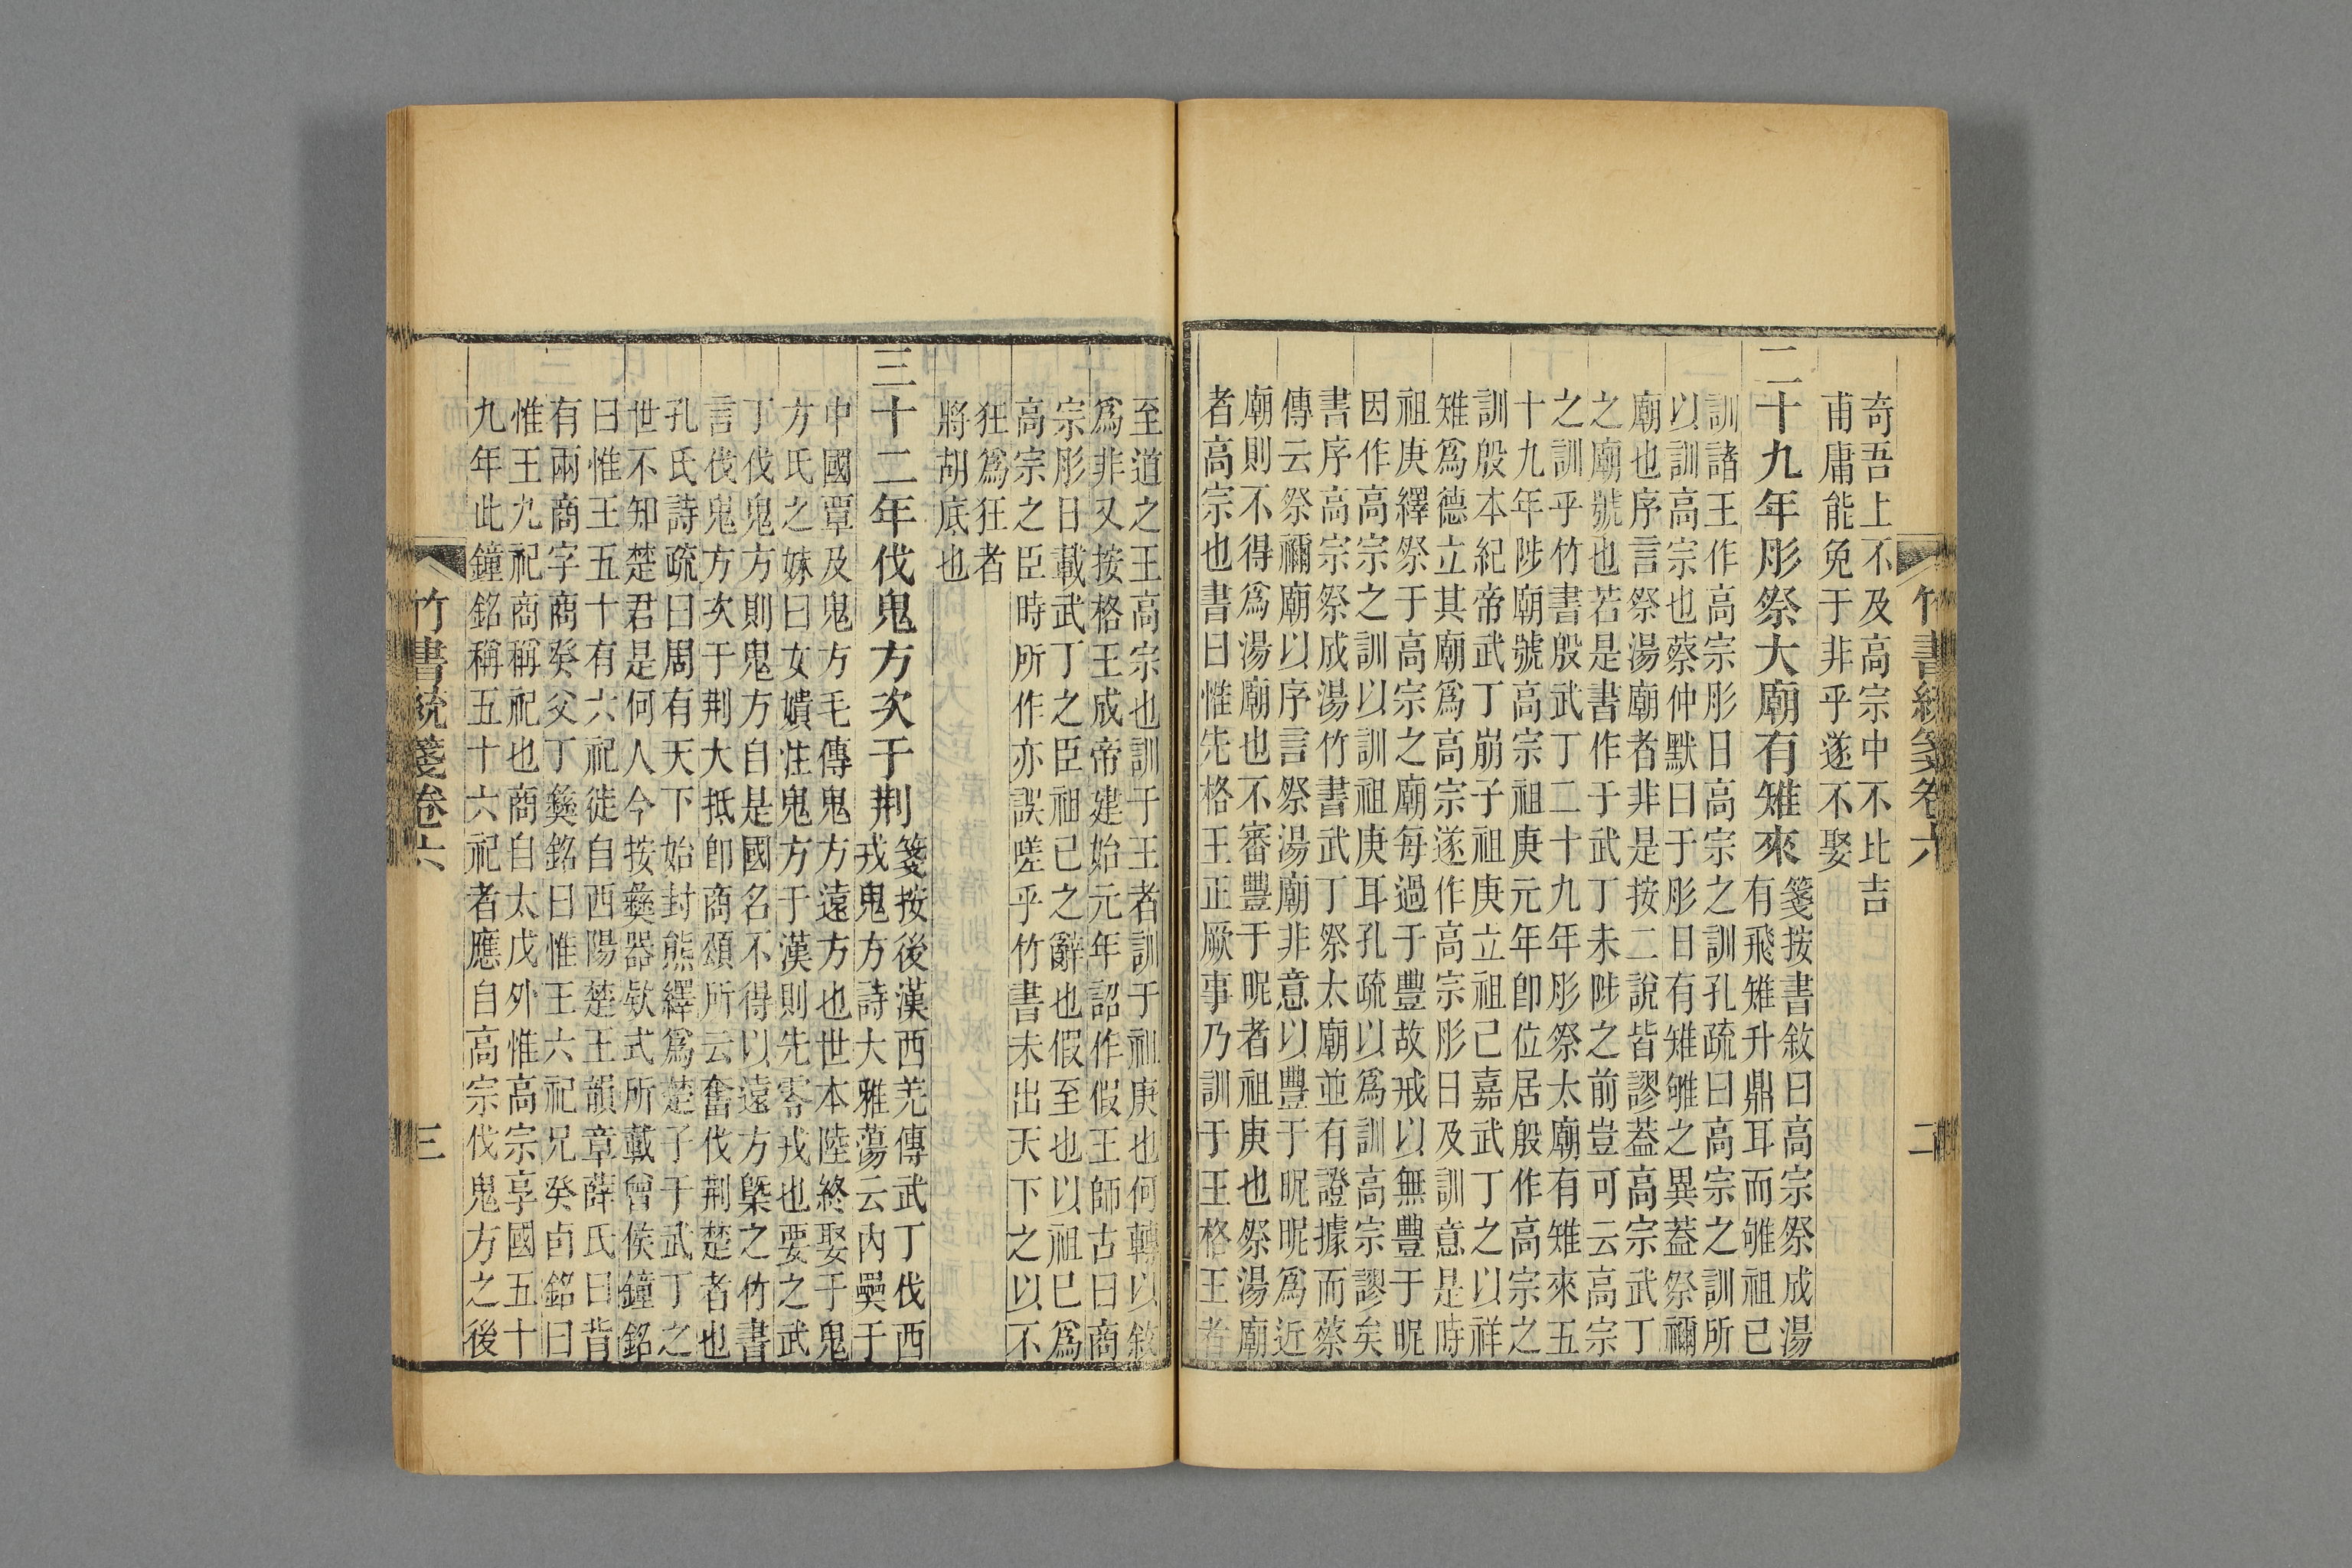 竹書統箋卷六
二
奇吾上不及高宗中不比吉
甫庸能免于非乎遂不娶
二十九年肜祭大廟有雉來
箋按書敘曰高宗祭成湯
有飛雉升鼎耳而雊祖已
訓諸王作高宗肜日高宗之訓孔疏曰高宗之訓所
以訓高宗也蔡仲默曰于肜日有雉雊之異蓋祭禰
廟也序言祭湯廟者非是按二說皆謬蓋高宗武丁
之廟號也若是書作于武丁未陟之前豈可云高宗
之訓乎竹書殷武丁二十九年肜祭太廟有雉來五
十九年陟廟號高宗祖庚元年卽位居殷作高宗之
訓殷本紀帝武丁崩子祖庚立祖己嘉武丁之以祥
雉爲德立其廟爲高宗遂作高宗肜日及訓意是時
祖庚繹祭于高宗之廟每過于豐故戒以無豐于昵
因作高宗之訓以訓祖庚耳孔疏以爲訓高宗謬矣
書序高宗祭成湯竹書武丁祭太廟並有證據而蔡
傳云祭禰廟以序言祭湯廟非意以豐于昵昵爲近
廟則不得爲湯廟也不審豐于昵者祖庚也祭湯廟
者高宗也書曰惟先格王正厥事乃訓于王格王者
至道之王高宗也訓于王者訓于祖庚也何轉以敘
爲非又按格王成帝建始元年詔作假王師古曰商
宗肜日載武丁之臣祖己之辭也假至也以祖巳爲
高宗之臣時所作亦誤嗟乎竹書未出天下之以不
狂爲狂者
將胡底也
三十二年伐鬼方次于荆
箋按後漢西羌傳武丁伐西
戎鬼方詩大雅蕩云內奰于
中國覃及鬼方毛傳鬼方遠方也世本陸終娶于鬼
方氏之妹曰女嬇注鬼方于漢則先零戎也要之武
丁伐鬼方則鬼方自是國名不得以遠方槩之竹書
言伐鬼方次于荆大抵卽商頌所云奮伐荆楚者也
孔氏詩疏曰周有天下始封熊繹爲楚子于武丁之
世不知楚君是何人今按彝器欵式所載曾侯鐘銘
曰惟王五十有六祀徙自西陽楚王韻章薛氏曰昔
有兩商字商癸父丁彝銘曰惟王六祀兄癸卣銘曰
惟王九祀商稱祀也商自太戊外惟高宗享國五十
九年此鐘銘稱五十六祀者應自高宗伐鬼方之後
竹書統箋卷六
三